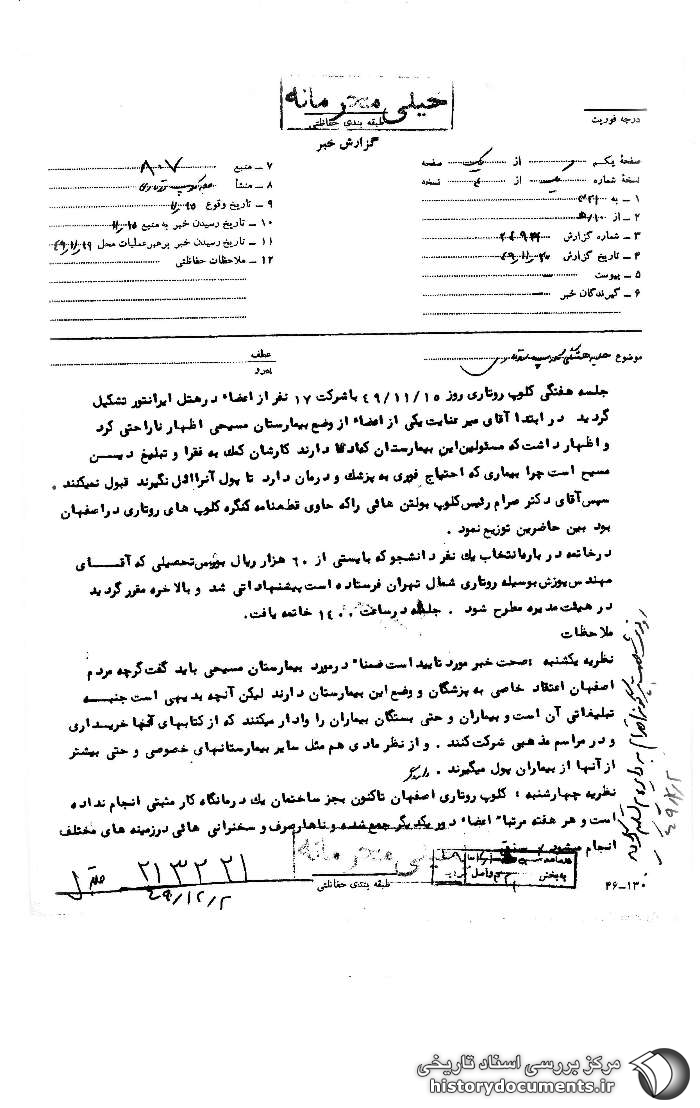 خیلی محرمانه
طبقه بندی حفاظتی
گزارش خبر
درجه فوریت
صفحه یکم از یک صفحه
نسخه شماره از نسخه
۱ ــ به
۲ ــ از
۳ ــ شماره گزارش
۴ ــ تاریخ گزارش
۵ ــ پیوست
۶ ــ گیرندگان خبر
۷ ــ منبع ۸۰۷
۸ ــ منشأ
۹ ــ تاریخ وقوع
۱۰ ــ تاریخ رسیدن خبر به منبع
۱۱ ــ تاریخ رسیدن خبر برهبر عملیات محل
۱۲ ــ ملاحظات حفاظتی
موضوع
عطف
پیرو
جلسه هفتگی کلوپ روتاری روز ۴۹/۱۱/۱۵ با شرکت ۱۷ نفر از اعضاء در هتل ایرانتور تشکیل
گردید در ابتدا آقای میر عنایت یکی از اعضاء از وضع بیمارستان مسیحی اظهار ناراحتی کرد
و اظهار داشت که مسئولین این بیمارستان که ادعا دارند کارشان کمک به فقرا و تبلیغ دیــن
مسیح است چرا بیماری که احتیاج فوری به پزشک و درمان دارد تا پول آنرا اول نگیرند قبول نمیکنند .
سپس آقای دکتر صرام رئیس کلوپ بولتن هائی را که حاوی قطعنامه کنگره کلوپ های روتاری در اصفهان
بود بین حاضرین توزیع نمود .
در خاتمه در باره انتخاب یک نفر دانشجو که بایستی از ۶۰ هزار ریال بورس تحصیلی که آقـــای
مهندس پوزش بوسیله روتاری شمال تهران فرستاده است پیشنهاداتی شد و بالاخره مقرر گردید
در هیئت مدیره مطرح شود . جلسه در ساعت ۱۴۰۰ خاتمه یافت .
ملاحظات
نظریه یکشنبه : صحت خبر مورد تایید است ضمناً در مورد بیمارستان مسیحی باید گفت گرچه مردم
اصفهان اعتقاد خاصی به پزشگان و وضع این بیمارستان دارند لیکن آنچه بدیهی است جنبـــه
تبلیغاتی آن است و بیماران و حتی بستگان بیماران را وادار میکنند که از کتابهای آنها خریــداری
و در مراسم مذهبی شرکت کنند . و از نظر مادی هم مثل سایر بیمارستانهای خصوصی و حتی بیشتر
از آنها از بیماران پول میگیرند .
نظریه چهارشنبه : کلوپ روتاری اصفهان تاکنون بجز ساختمان یک درمانگاه کار مثبتی انجام نداده
است و هر هفته مرتباً اعضاء دور یکدیگر جمع شده و ناهار صرف و سخنرانی هائی در زمینه های مختلف
انجام میشود .
خیلی محرمانه
طبقه بندی حفاظتی
۲۱۳۲۲۱
۴۹/۱۲/۲
۴۶ــ۱۳۰
مرکز بررسی اسناد تاریخی
historydocuments.ir